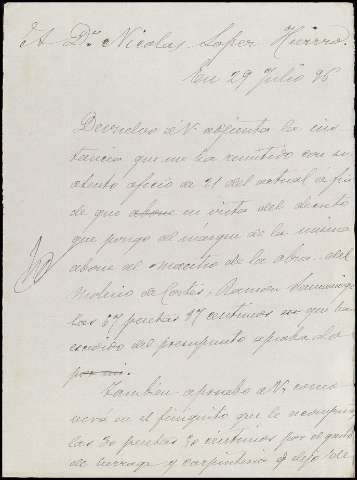 A Dn. Nicolas Lopez Hierro.
En 29 Julio 96
Devuelvo á V. adjunta la ins-
tancia que me ha remitido con su
atento oficio de 21 del actual a fin
de que abone en vista del decreto
que pongo al márgen de la misma
abone al maestro de la obra del
Molino de Cortés, Ramon
las 67 pesetas 97 centimos que ha
escedido del presupuesto aprobado
por mi.
Tambien apruebo á V. como
verá en el finiquito que le acompaño
las 30 pesetas 30 centimos por el gasto
de herrage y carpinteria q dejo de